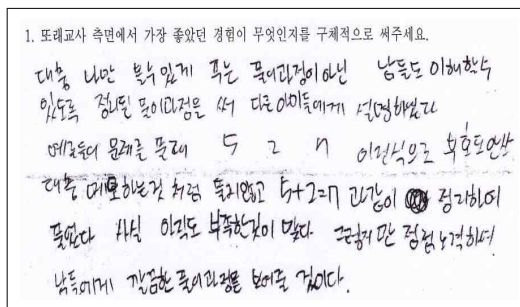 1. 또래교사 측면에서 가장 좋았던 경험이 무엇인지를 구체적으로 써주세요.
대충 나만 볼수있게 푸는 풀이과정이 아닌 남들도 이해할수
있도록 정리된 풀이과정을 써 다른아이들에게 설명하였다
예를들어 문제를 풀때 5 2 7 이런식으로 부호도안산
대충 메모하는것 처럼 풀지않고 5+2=7 과같이 정리하여
풀었다 사실 아직도 부족한것이 많다 그렇지만 점점 노력하여
남들에게 깔끔한 풀이과정을 보여줄 것이다.